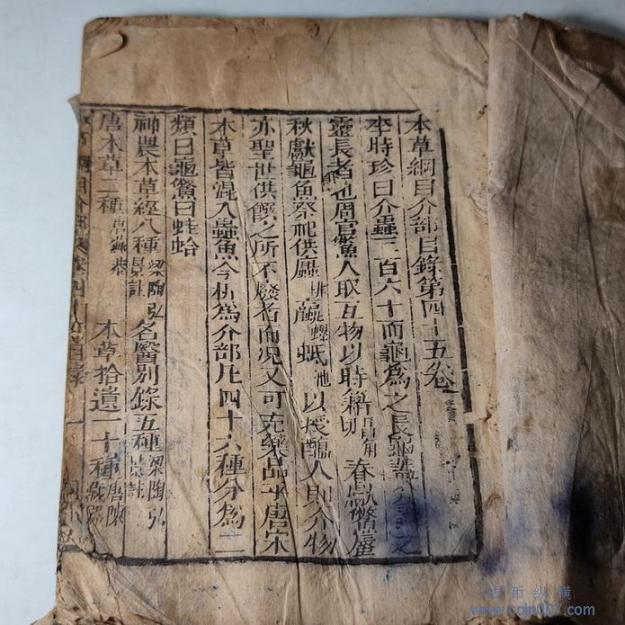 本草綱目介部目錄第四十五卷
李時珍曰介蟲三百六十而龜爲之長龜蓋介蟲之
靈長者也周官鱉人取互物以時籍春獻鱉蜃
秋獻龜魚祭祀供蠯排蠃螺蚳池以授醢人則介物
亦聖世供饌之所不廢者而況又可充藥品乎唐宋
本草皆混入蟲魚今析爲介部凡四十六種分爲二
類曰龜鱉曰蚌蛤
神農本草經八種梁陶弘景註名醫別錄五種梁陶弘景註
唐本草二種唐蘇恭本草拾遺一十種唐陳藏器